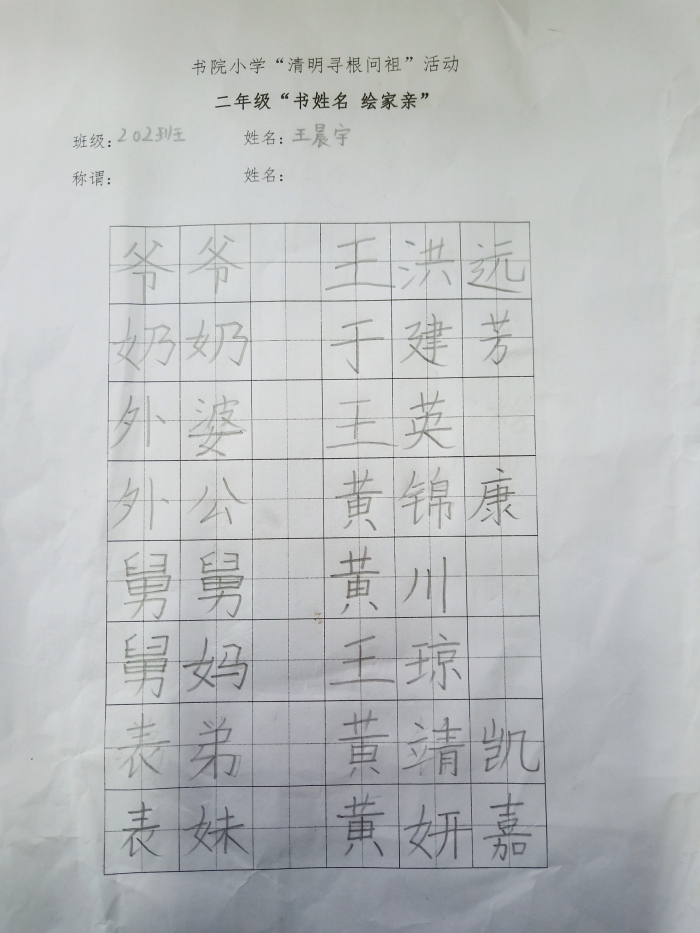 书院小学“清明寻根问祖”活动
二年级“书姓名 绘家亲”
班级：202班 姓名：王晨宇
称谓： 姓名：
爷爷 王洪远
奶奶 于建芳
外婆 王英
外公 黄锦康
舅舅 黄川
舅妈 王琼
表弟 黄靖凯
表妹 黄妍嘉